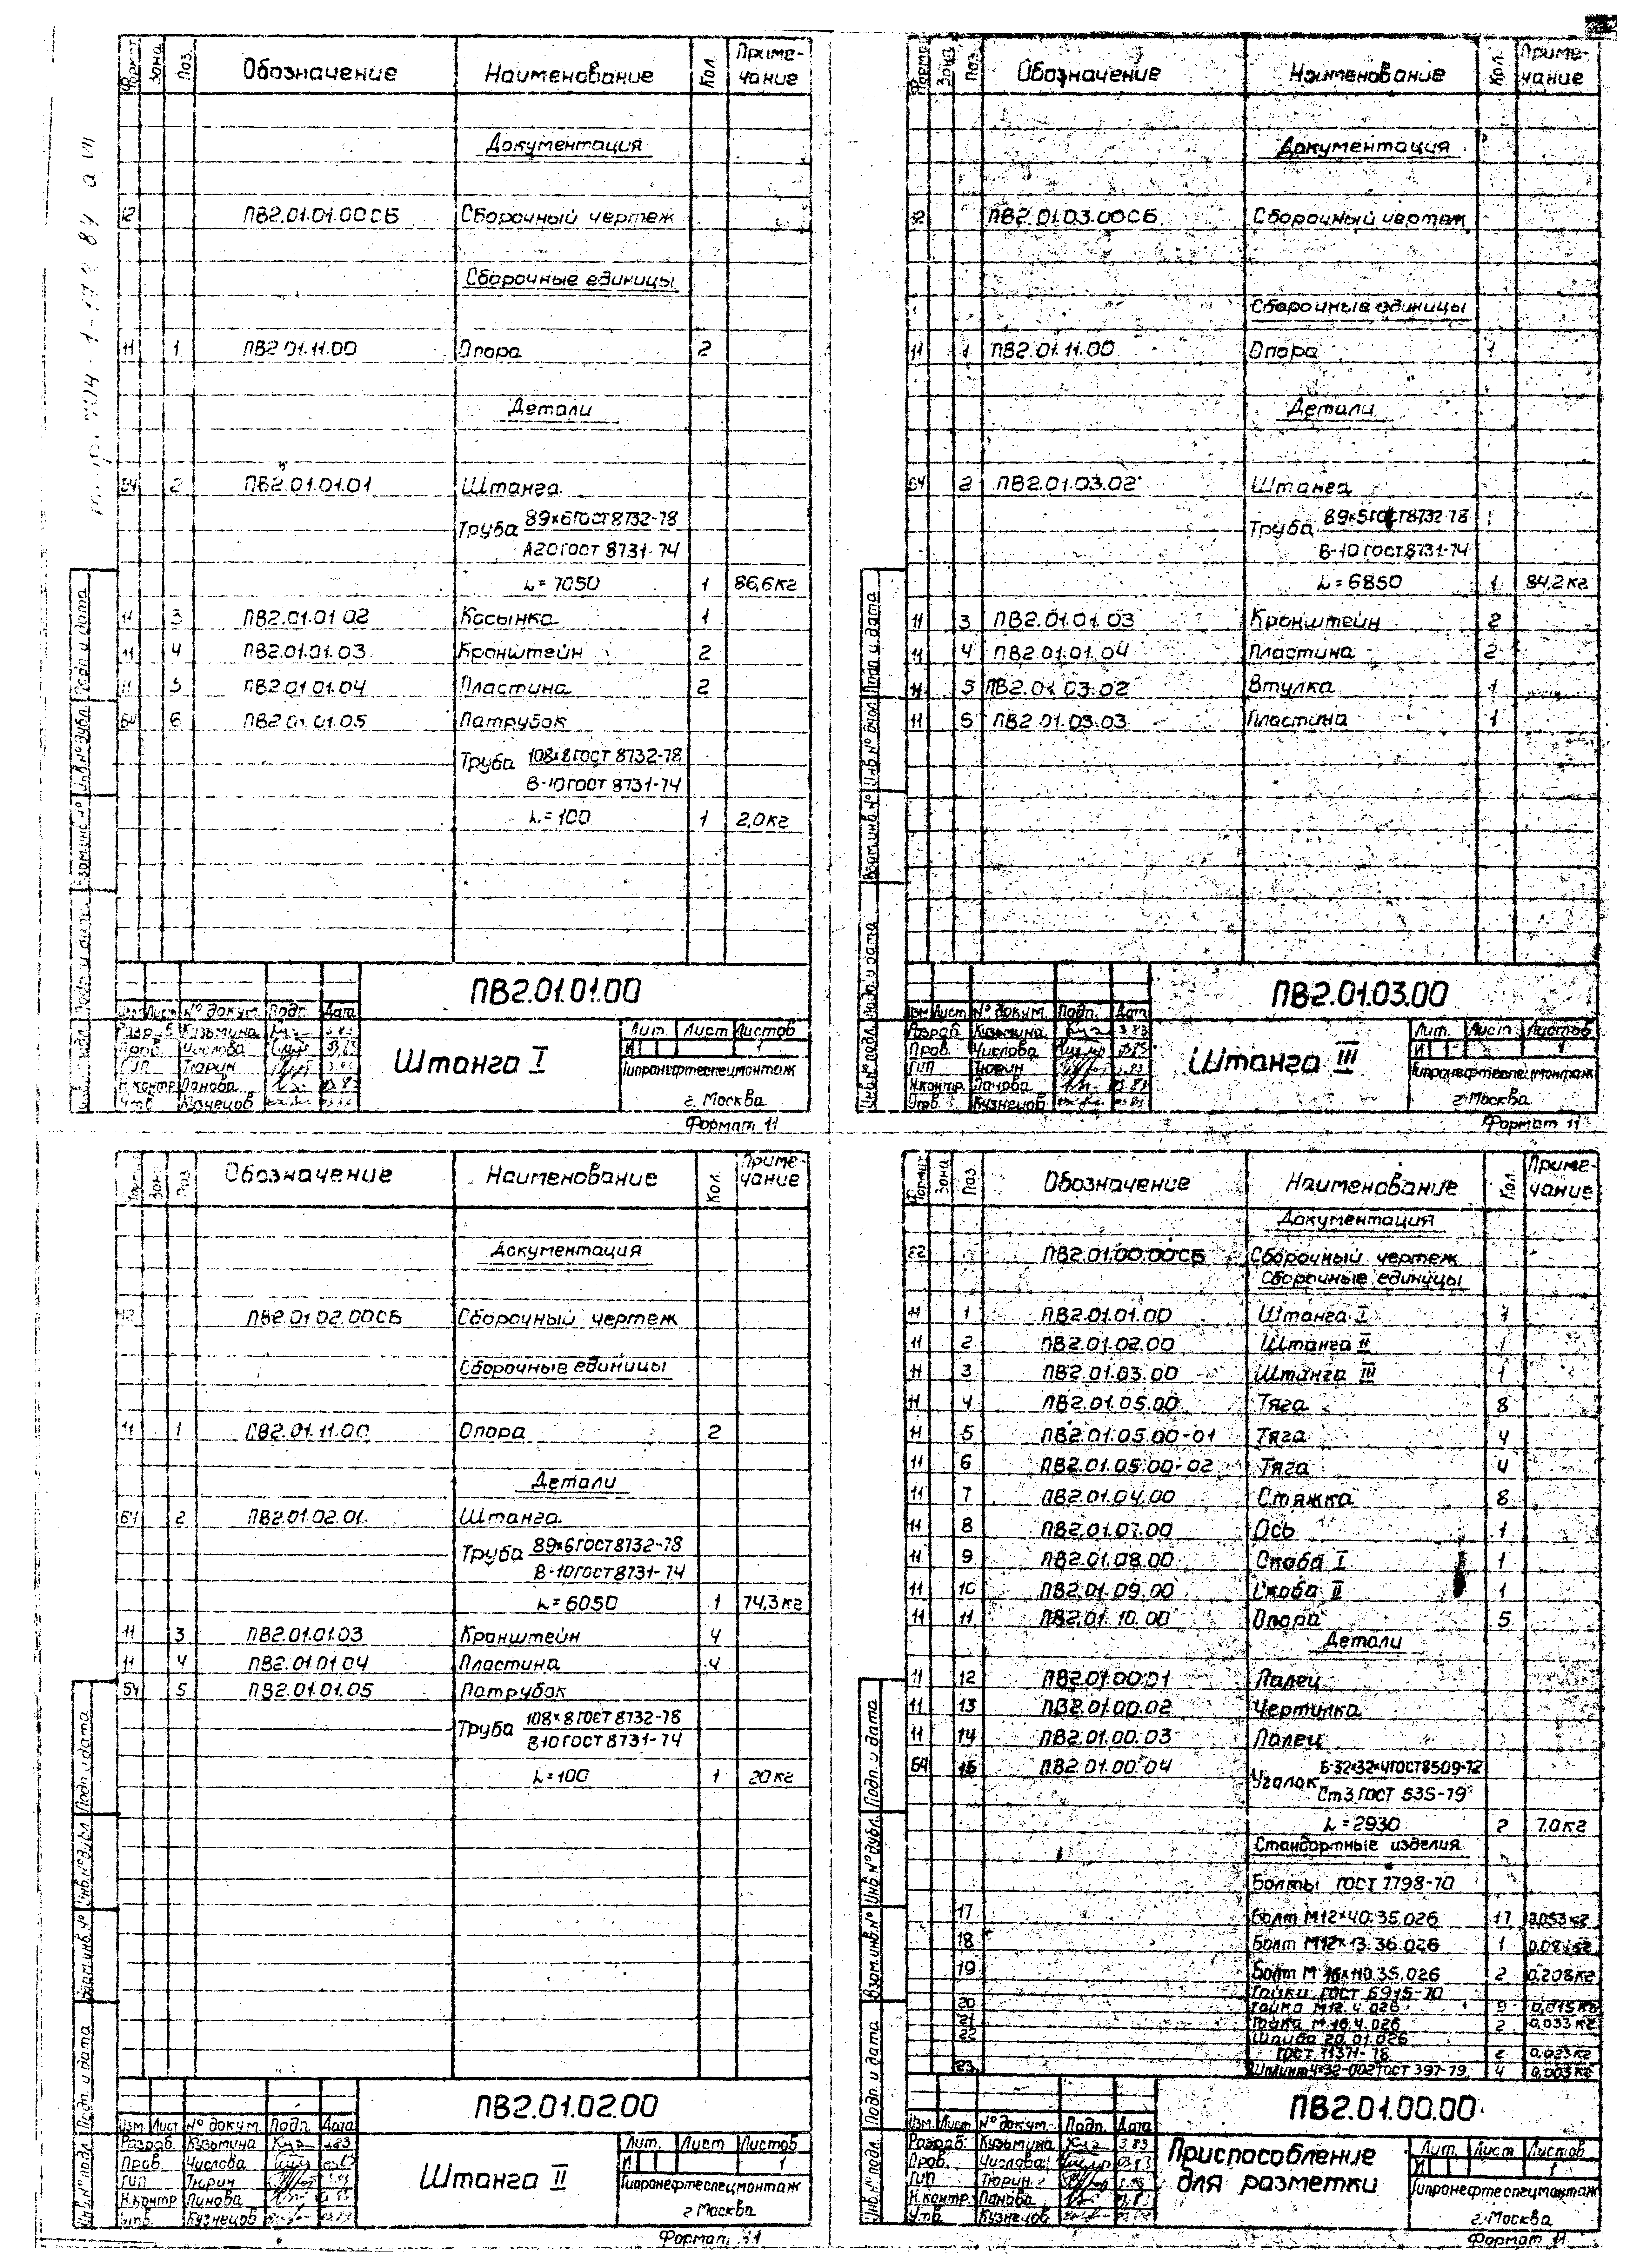 Формат Зона Поз. Обозначение Наименование Кол. Приме-
чание
Документация
12 ПВ2.01.01.00СБ Сборочный чертеж
Сборочные единицы
11 1 ПВ2.01.11.00 Опора 2
Детали
БЧ 2 ПВ2.01.01.01 Штанга
Труба 89×6 ГОСТ 8732-78
А20 ГОСТ 8731-74
L=7050 1 86,6кг
11 3 ПВ2.01.01.02 Косынка 1
11 4 ПВ2.01.01.03 Кронштейн 2
11 5 ПВ2.01.01.04 Пластина 2
БЧ 6 ПВ2.01.01.05 Патрубок
Труба 108×8 ГОСТ 8732-78
В-10 ГОСТ 8731-74
L=100 1 2,0кг
ПВ2.01.01.00
Изм Лист № докум. Подп. Дата
Разраб. Кузьмина 3.83
Пров. Числова 03.83
ГИП Тюрин 3.83
Н.контр. Панова 03.83
Утв.
Штанга I
Лит. Лист Листов
И 1
Гипронефтеспецмонтаж
г. Москва
Формат 11
Инв.№ подл. Подп. и дата Взам.инв.№ Инв.№ дубл. Подп. и дата
Формат Зона Поз. Обозначение Наименование Кол. Приме-
чание
Документация
12 ПВ2.01.03.00СБ Сборочный чертеж
Сборочные единицы
11 1 ПВ2.01.11.00 Опора 1
Детали
БЧ 2 ПВ2.01.03.02 Штанга
Труба 89×5 ГОСТ 8732-78
В-10 ГОСТ 8731-74
L=6850 1 84,2кг
11 3 ПВ2.01.01.03 Кронштейн 2
11 4 ПВ2.01.01.04 Пластина 2
11 5 ПВ2.01.03.02 Втулка 1
11 6 ПВ2.01.03.03 Пластина 1
ПВ2.01.03.00
Изм Лист № докум. Подп. Дата
Разраб. Кузьмина 3.83
Пров. Числова 03.83
ГИП Тюрин 3.83
Н.контр. Панова 03.83
Утв. Кузнецов 03.83
Штанга III
Лит. Лист Листов
И 1
Гипронефтеспецмонтаж
г. Москва
Формат 11
Инв.№ подл. Подп. и дата Взам.инв.№ Инв.№ дубл. Подп. и дата
Зона Поз. Обозначение Наименование Кол. Приме-
чание
Документация
12 ПВ2.01.02.00СБ Сборочный чертеж
Сборочные единицы
11 1 ПВ2.01.11.00 Опора 2
Детали
БЧ 2 ПВ2.01.02.01. Штанга
Труба 89×6 ГОСТ 8732-78
В-10 ГОСТ 8731-74
L=6050 1 74,3кг
11 3 ПВ2.01.01.03 Кронштейн 4
11 4 ПВ2.01.01.04 Пластина 4
БЧ 5 ПВ2.01.01.05 Патрубок
Труба 108×8 ГОСТ 8732-78
В10 ГОСТ 8731-74
L=100 1 20кг
ПВ2.01.02.00
Изм. Лист № докум. Подп. Дата
Разраб. Кузьмина 3.83
Пров. Числова 03.83
ГИП Тюрин 3.83
Н.контр Панова
Утв. Кузнецов
Штанга II
Лит. Лист Листов
И 1
Гипронефтеспецмонтаж
г Москва
Формат 11
Инв.№ подл. Подп. и дата Взам.инв.№ Инв.№ дубл Подп. и дата
Формат Зона Поз. Обозначение Наименование Кол. Приме-
чание
Документация
22 ПВ2.01.00.00СБ Сборочный чертеж
Сборочные единицы
11 1 ПВ2.01.01.00 Штанга I 1
11 2 ПВ2.01.02.00 Штанга II 1
11 3 ПВ2.01.03.00 Штанга III 1
11 4 ПВ2.01.05.00 Тяга 8
11 5 ПВ2.01.05.00-01 Тяга 4
11 6 ПВ2.01.05.00-02 Тяга 4
11 7 ПВ2.01.04.00 Стяжка 8
11 8 ПВ2.01.07.00 Ось 1
11 9 ПВ2.01.08.00 Скоба I 1
11 10 ПВ2.01.09.00 Скоба II 1
11 11 ПВ2.01.10.00 Опора 5
Детали
11 12 ПВ2.01.00.01 Палец
11 13 ПВ2.01.00.02 Чертилка
11 14 ПВ2.01.00.03 Палец
БЧ 15 ПВ2.01.00.04 Уголок Б-32×32×4 ГОСТ 8509-72
Ст3 ГОСТ 535-79
L=2930 2 7.0кг
Стандартные изделия
Болты ГОСТ 7798-70
17 Болт М12×40.35.026 17 0,053кг
18 Болт М12×13.36.026 1
19 Болт М16×110.35.026 2 0,208кг
Гайки ГОСТ 5915-70
20 Гайка М12.4.026 9 0,015кг
21 Гайка М16.4.026 2 0,033кг
22 Шайба 20.01.026
ГОСТ 11371-78 2 0,023кг
23 Шплинт 4×32-002 ГОСТ 397-79 4 0,003кг
ПВ2.01.00.00
Изм. Лист № докум. Подп. Дата
Разраб. Кузьмина 3.83
Пров. Числова 03.83
ГИП Тюрин 3.83
Н.контр. Панова
Утв. Кузнецов
Приспособление
для разметки
Лит. Лист Листов
И 1
Гипронефтеспецмонтаж
г. Москва
Формат 11
Инв.№ подл. Подп. и дата Взам.инв.№ Инв.№ дубл. Подп. и дата